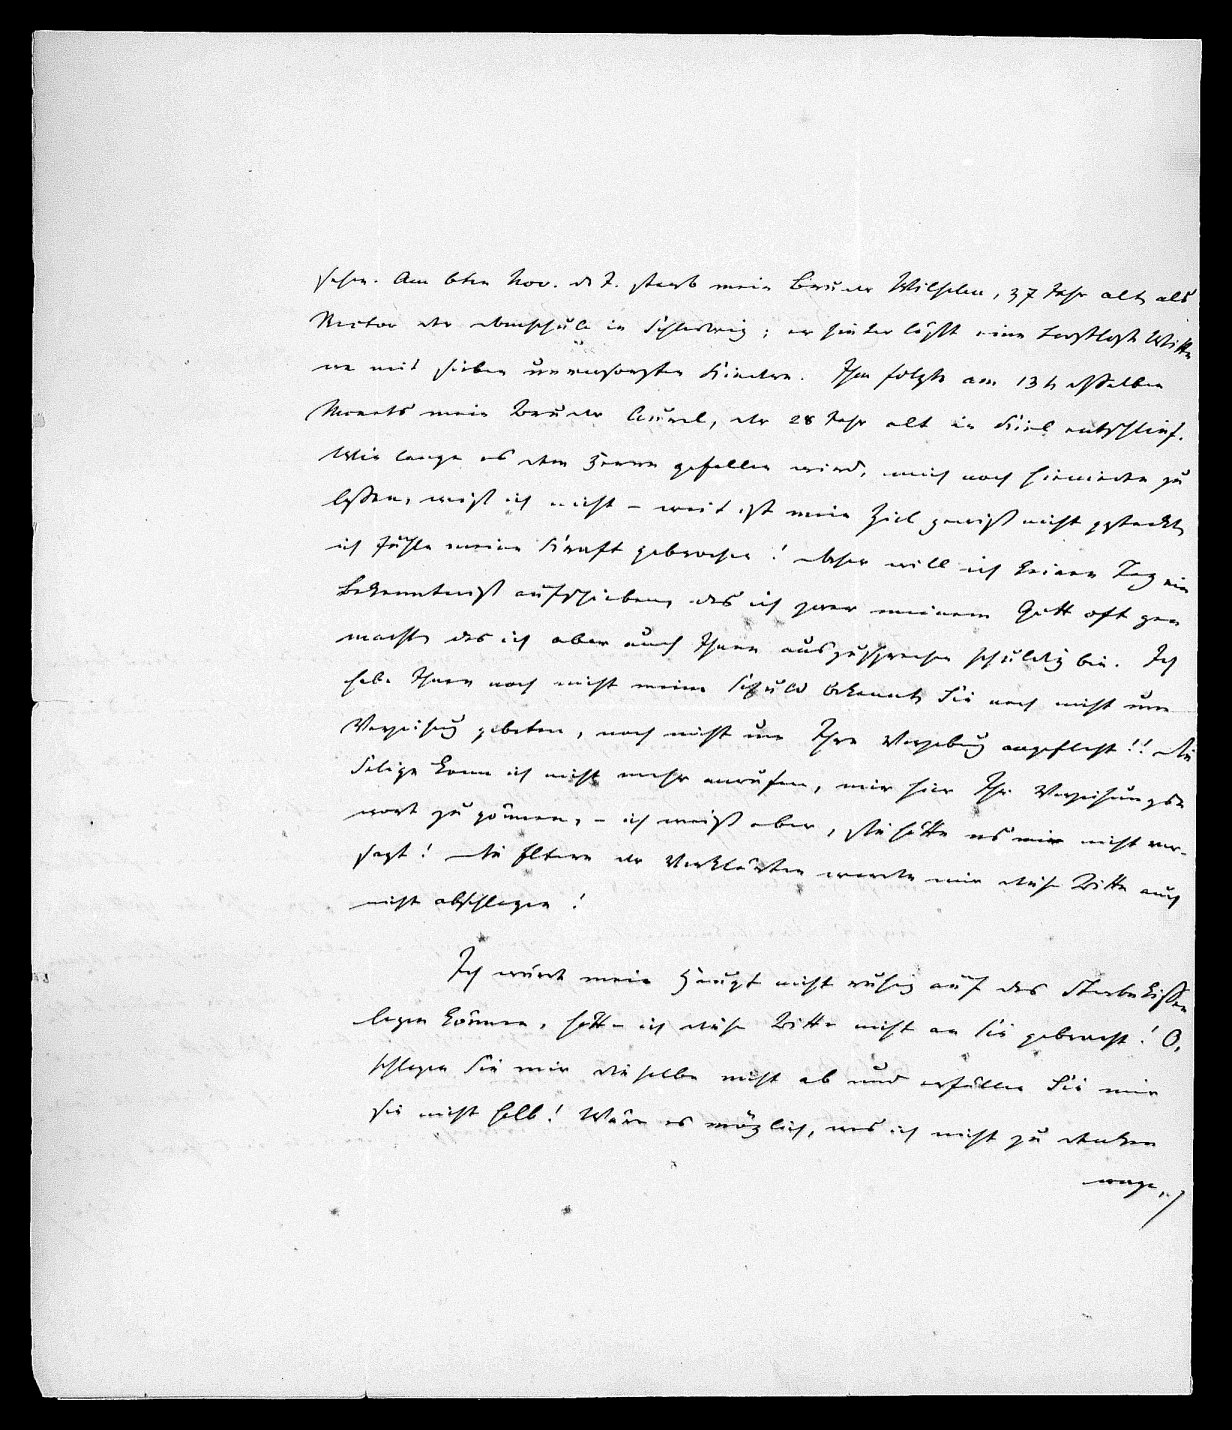 sehen. Am 6ten Nov. d. J. starb mein Bruder Wilhelm, 37 Jahr alt, als
Rector der Domschule in Schleswig; er hinterläßt eine trostlose Witt
we mit sieben unversorgten Kindern. Ihm folgte am 13t. desselben
Monats mein Bruder Aurel, der 28 Jahr alt in Kiel entschlief.
Wie lange es dem Herrn gefallen wird, mich noch hienieden zu
lassen, weiß ich nicht – weit ist mein Ziel gewiß nicht gesteckt,
ich fühle meine Kraft gebrochen! Daher will ich keinen Tag ein
Bekenntniß aufschieben, das ich zwar meinem Gott oft ge
macht, das ich aber auch Ihnen auszusprechen schuldig bin. Ich
habe Ihnen noch nicht meine Schuld bekannt, Sie noch nicht um
Verzeihung gebeten, noch nicht um Ihre Vergebung angefleht!! Die
Selige kann ich nicht mehr anrufen, mir hier Ihr Verzeihungs
wort zu gönnen, – ich weiß aber, sie hätte es mir nicht ver-
sagt! Die Eltern der Verklärten werden mir diese Bitte auch
nicht abschlagen!
Ich würde mein Haupt nicht ruhig auf das Sterbekissen
legen können, hätte ich diese Bitte nicht an Sie gebracht! O,
schlagen Sie mir dieselbe nicht ab und erfüllen Sie mir
sie nicht halb! Wäre es möglich, was ich nicht zu denken
wage,